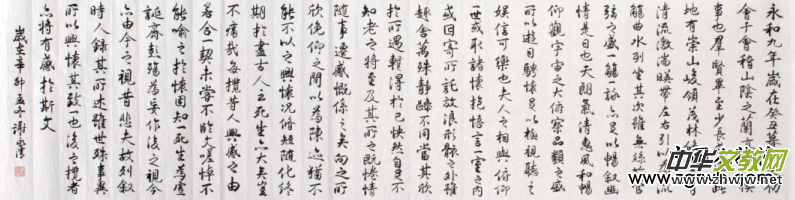 永和九年歲在癸丑暮春之初
會于會稽山陰之蘭亭脩禊
事也群賢畢至少長咸集此
地有崇山峻領茂林脩竹又有
清流激湍暎帶左右引以為流
觴曲水列坐其次雖無絲竹管
弦之盛一觴一詠亦足以暢敘幽
情是日也天朗氣清惠風和暢
仰觀宇宙之大俯察品類之盛
所以遊目騁懷足以極視聽之
娛信可樂也夫人之相與俯仰
一世或取諸懷抱悟言一室之內
或因寄所託放浪形骸之外雖
趣舍萬殊靜躁不同當其欣
於所遇暫得於己快然自足不
知老之將至及其所之既惓情
隨事遷感慨係之矣向之所
欣俛仰之間以為陳跡猶不
能不以之興懷況脩短隨化終
期於盡古人云死生亦大矣豈
不痛哉每攬昔人興感之由
若合一契未嘗不臨文嗟悼不
能喻之於懷固知一死生為虛
誕齊彭殤為妄作後之視今
亦由今之視昔悲夫故列敘
時人錄其所述雖世殊事異
所以興懷其致一也後之攬者
亦將有感於斯文
歲在辛卯孟冬謝
中华文教网
www.zhwjw.net